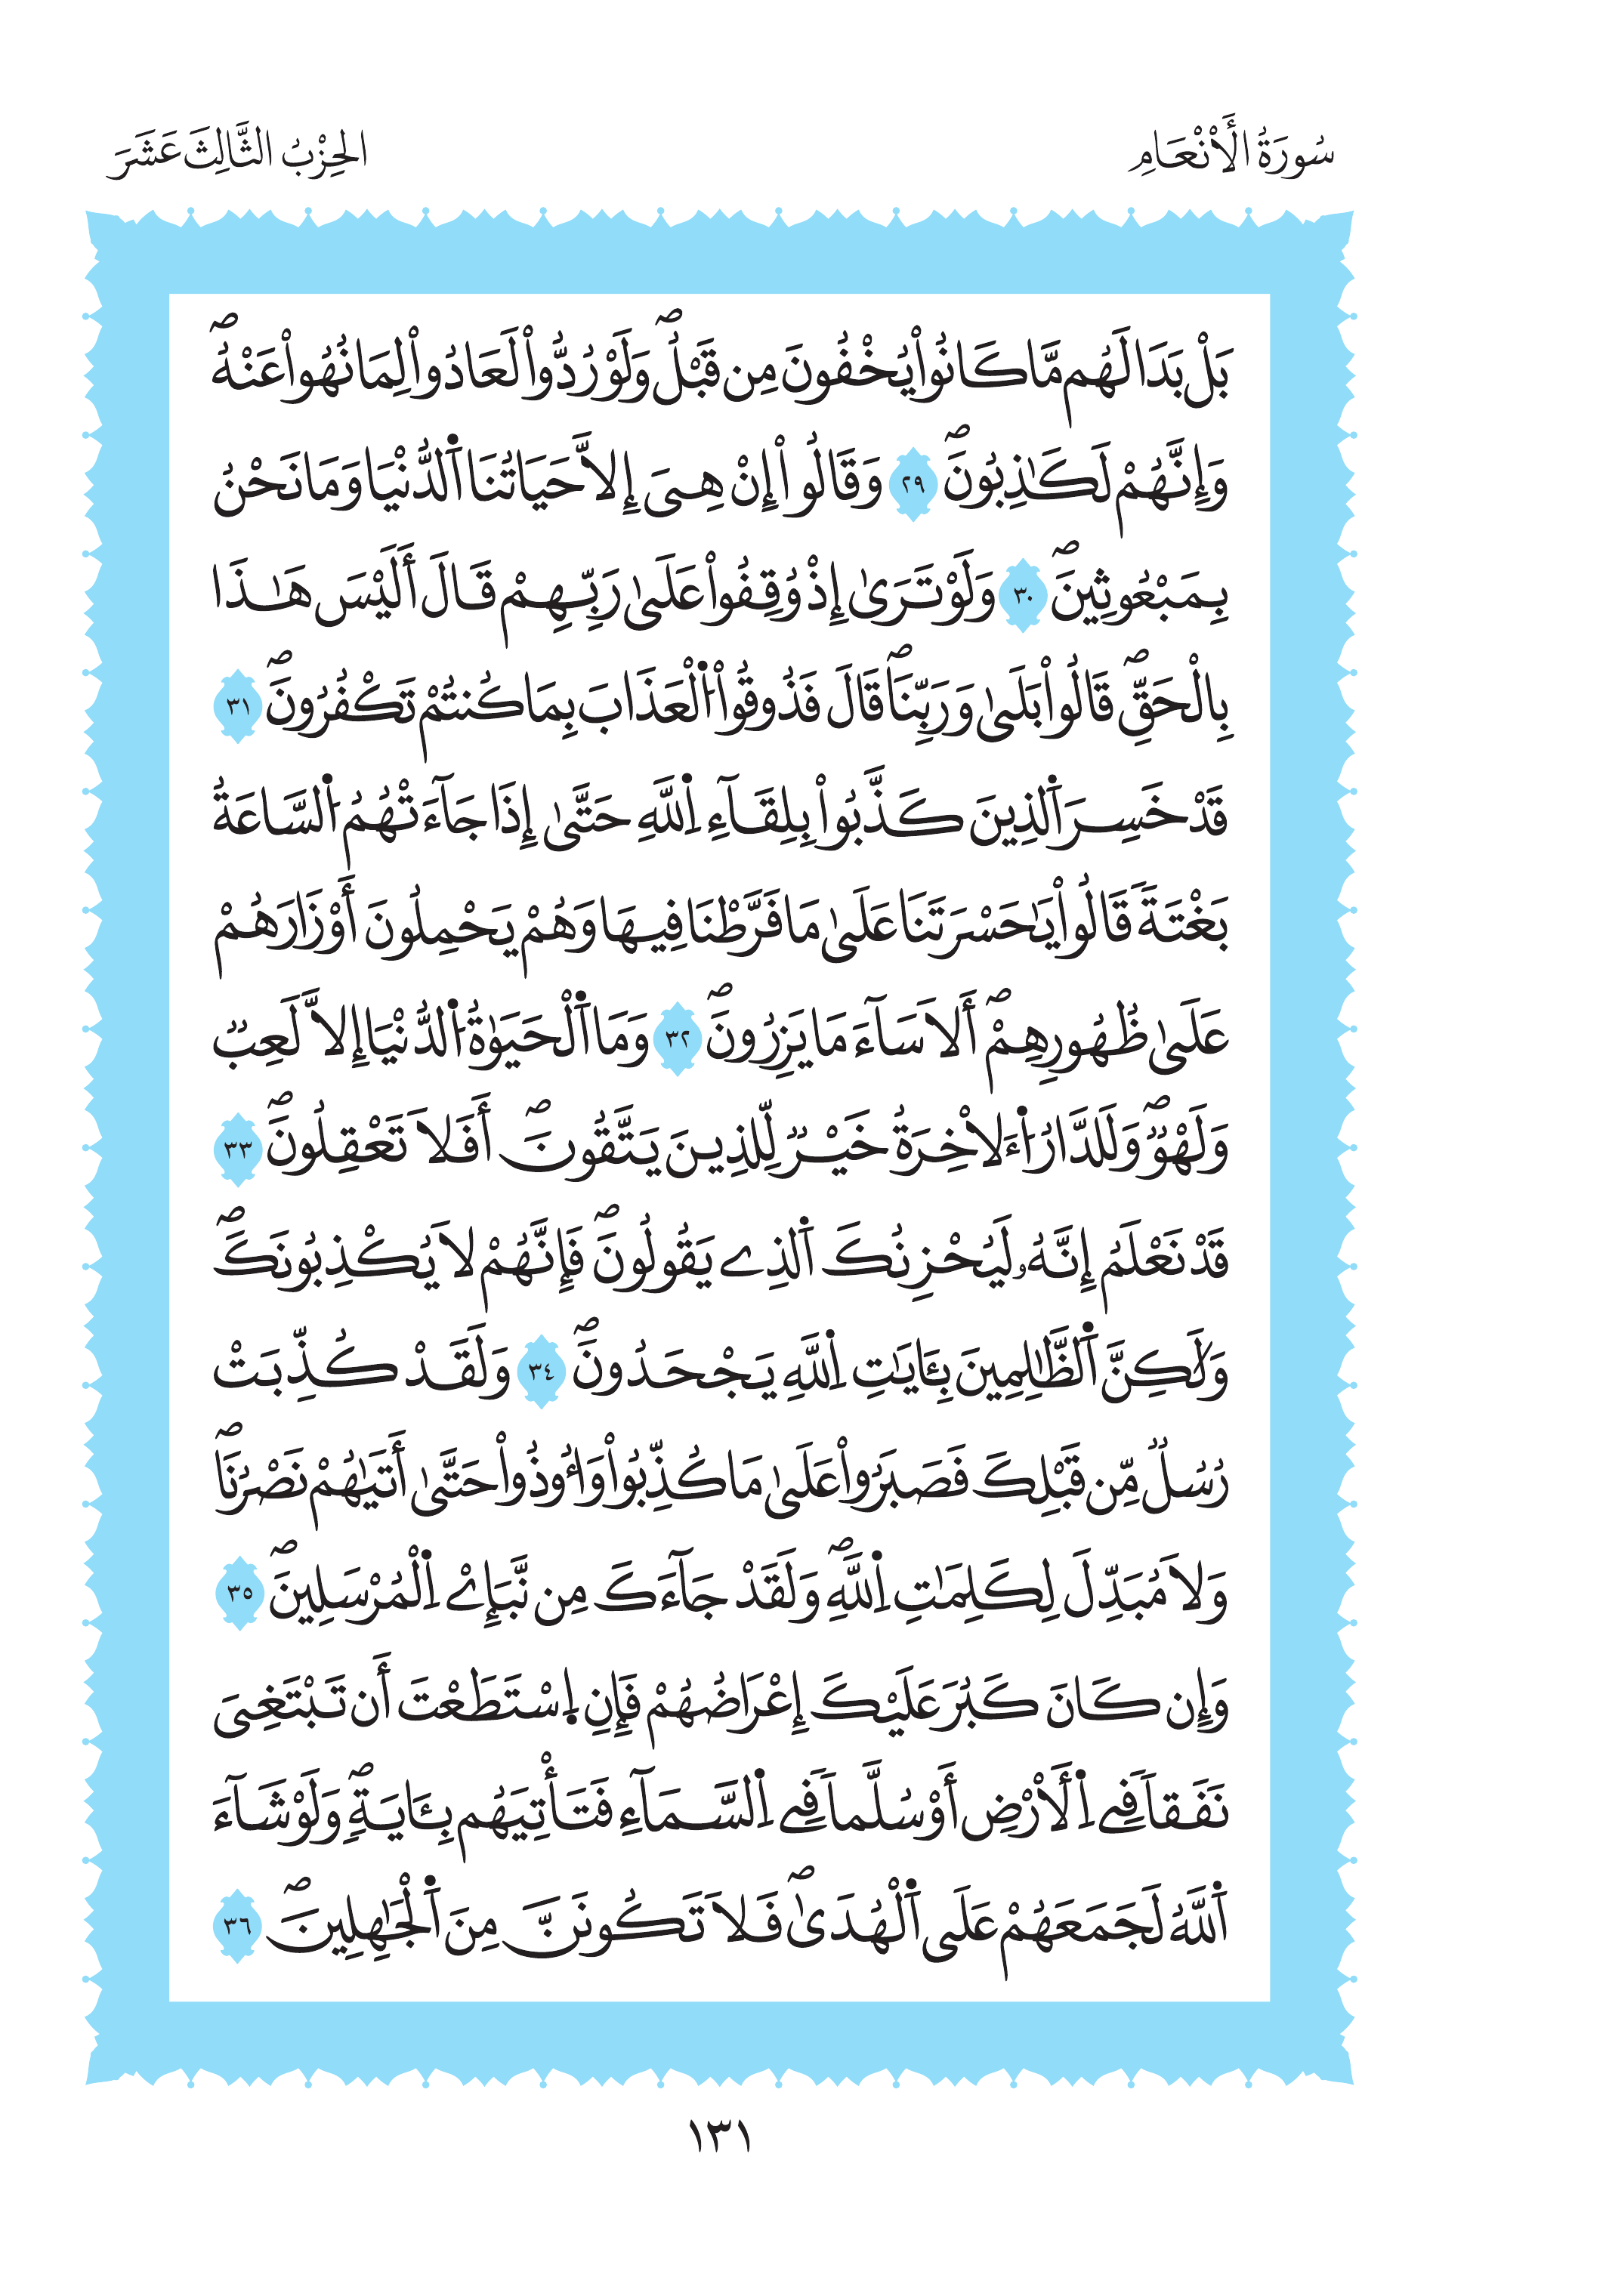 سُورَةُ الْأَنْعَامِ
الحِزْبُ الثَّالِثَ عَشَرَ
بَلْ بَدَا لَهُم مَّا كَانُواْ يُخْفُونَ مِن قَبْلُۖ وَلَوْ رُدُّواْ لَعَادُواْ لِمَا نُهُواْ عَنْهُۖ
وَإِنَّهُمْ لَكَٰذِبُونَۖ ٢٩ وَقَالُواْ إِنْ هِيَ إِلاَّ حَيَاتُنَا اَ۬لدُّنْيَا وَمَا نَحْنُ
بِمَبْعُوثِينَۖ ٣٠ وَلَوْ تَرَىٰ إِذْ وُقِفُواْ عَلَىٰ رَبِّهِمْ قَالَ أَلَيْسَ هَٰذَا
بِالْحَقِّۖ قَالُواْ بَلَىٰ وَرَبِّنَاۖ قَالَ فَذُوقُواْ اُ۬لْعَذَابَ بِمَا كُنتُمْ تَكْفُرُونَۖ ٣١
قَدْ خَسِرَ اَ۬لذِينَ كَذَّبُواْ بِلِقَآءِ اِ۬للَّهِ حَتَّىٰ إِذَا جَآءَتْهُمُ اُ۬لسَّاعَةُ
بَغْتَةٗ قَالُواْ يَٰحَسْرَتَنَا عَلَىٰ مَا فَرَّطْنَا فِيهَا وَهُمْ يَحْمِلُونَ أَوْزَارَهُمْ
عَلَىٰ ظُهُورِهِمْۖ أَلاَ سَآءَ مَا يَزِرُونَۖ ٣٢ وَمَا اَ۬لْحَيَوٰةُ اُ۬لدُّنْيَا إِلاَّ لَعِبٞ
وَلَهْوٞۖ وَلَلدَّارُ اُ۬ءَلاْخِرَةُ خَيْرٞ لِّلذِينَ يَتَّقُونَۖ أَفَلاَ تَعْقِلُونَۖ ٣٣
قَدْ نَعْلَمُ إِنَّهُۥ لَيُحْزِنُكَ اَ۬لذِے يَقُولُونَۖ فَإِنَّهُمْ لاَ يُكْذِبُونَكَۖ
وَلَٰكِنَّ اَ۬لظَّٰلِمِينَ بِـَٔايَٰتِ اِ۬للَّهِ يَجْحَدُونَۖ ٣٤ وَلَقَدْ كُذِّبَتْ
رُسُلٞ مِّن قَبْلِكَ فَصَبَرُواْ عَلَىٰ مَا كُذِّبُواْ وَأُوذُواْ حَتَّىٰ أَتَيٰهُمْ نَصْرُنَاۖ
وَلاَ مُبَدِّلَ لِكَلِمَٰتِ اِ۬للَّهِۖ وَلَقَدْ جَآءَكَ مِن نَّبَإِےْ اِ۬لْمُرْسَلِينَۖ ٣٥
وَإِن كَانَ كَبُرَ عَلَيْكَ إِعْرَاضُهُمْ فَإِنِ اِ۪سْتَطَعْتَ أَن تَبْتَغِيَ
نَفَقاٗ فِے اِ۬لْأَرْضِ أَوْ سُلَّماٗ فِے اِ۬لسَّمَآءِ فَتَأْتِيَهُم بِـَٔايَةٖۖ وَلَوْ شَآءَ
اَ۬للَّهُ لَجَمَعَهُمْ عَلَى اَ۬لْهُدَىٰۖ فَلاَ تَكُونَنَّ مِنَ اَ۬لْجَٰهِلِينَۖ ٣٦
١٣١